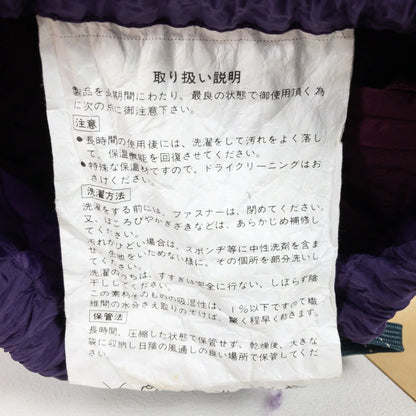 取り扱い説明
製品を長期間にわたり、最良の状態で御使用頂く為
に次の点に御注意下さい。
注意
●長時間の使用後には、洗濯をして汚れをよく落し
て、保温機能を回復させてください。
●特殊な保温材ですので、ドライクリーニングはお
さけください。
洗濯方法
洗濯をする前には、ファスナーは、閉めてください。
又、ほころびやかぎざきなどは、あらかじめ補修し
てください。
汚れがひどい場合は、スポンヂ等に中性洗剤を含ま
せ、生地をいためない様に、その個所を部分洗いし
てください。
洗濯のうちは、すすぎは完全に行ない、しぼらず陰
干ししてください。
この素材そのものの吸湿性は、1%以下ですので繊
維間の水分さえ取りのぞけば、驚く程早く乾きます。
保管法
長時間、圧縮した状態で保管せず、乾燥後、大きな
袋に収納し日陰の風通しの良い場所で保管してくだ